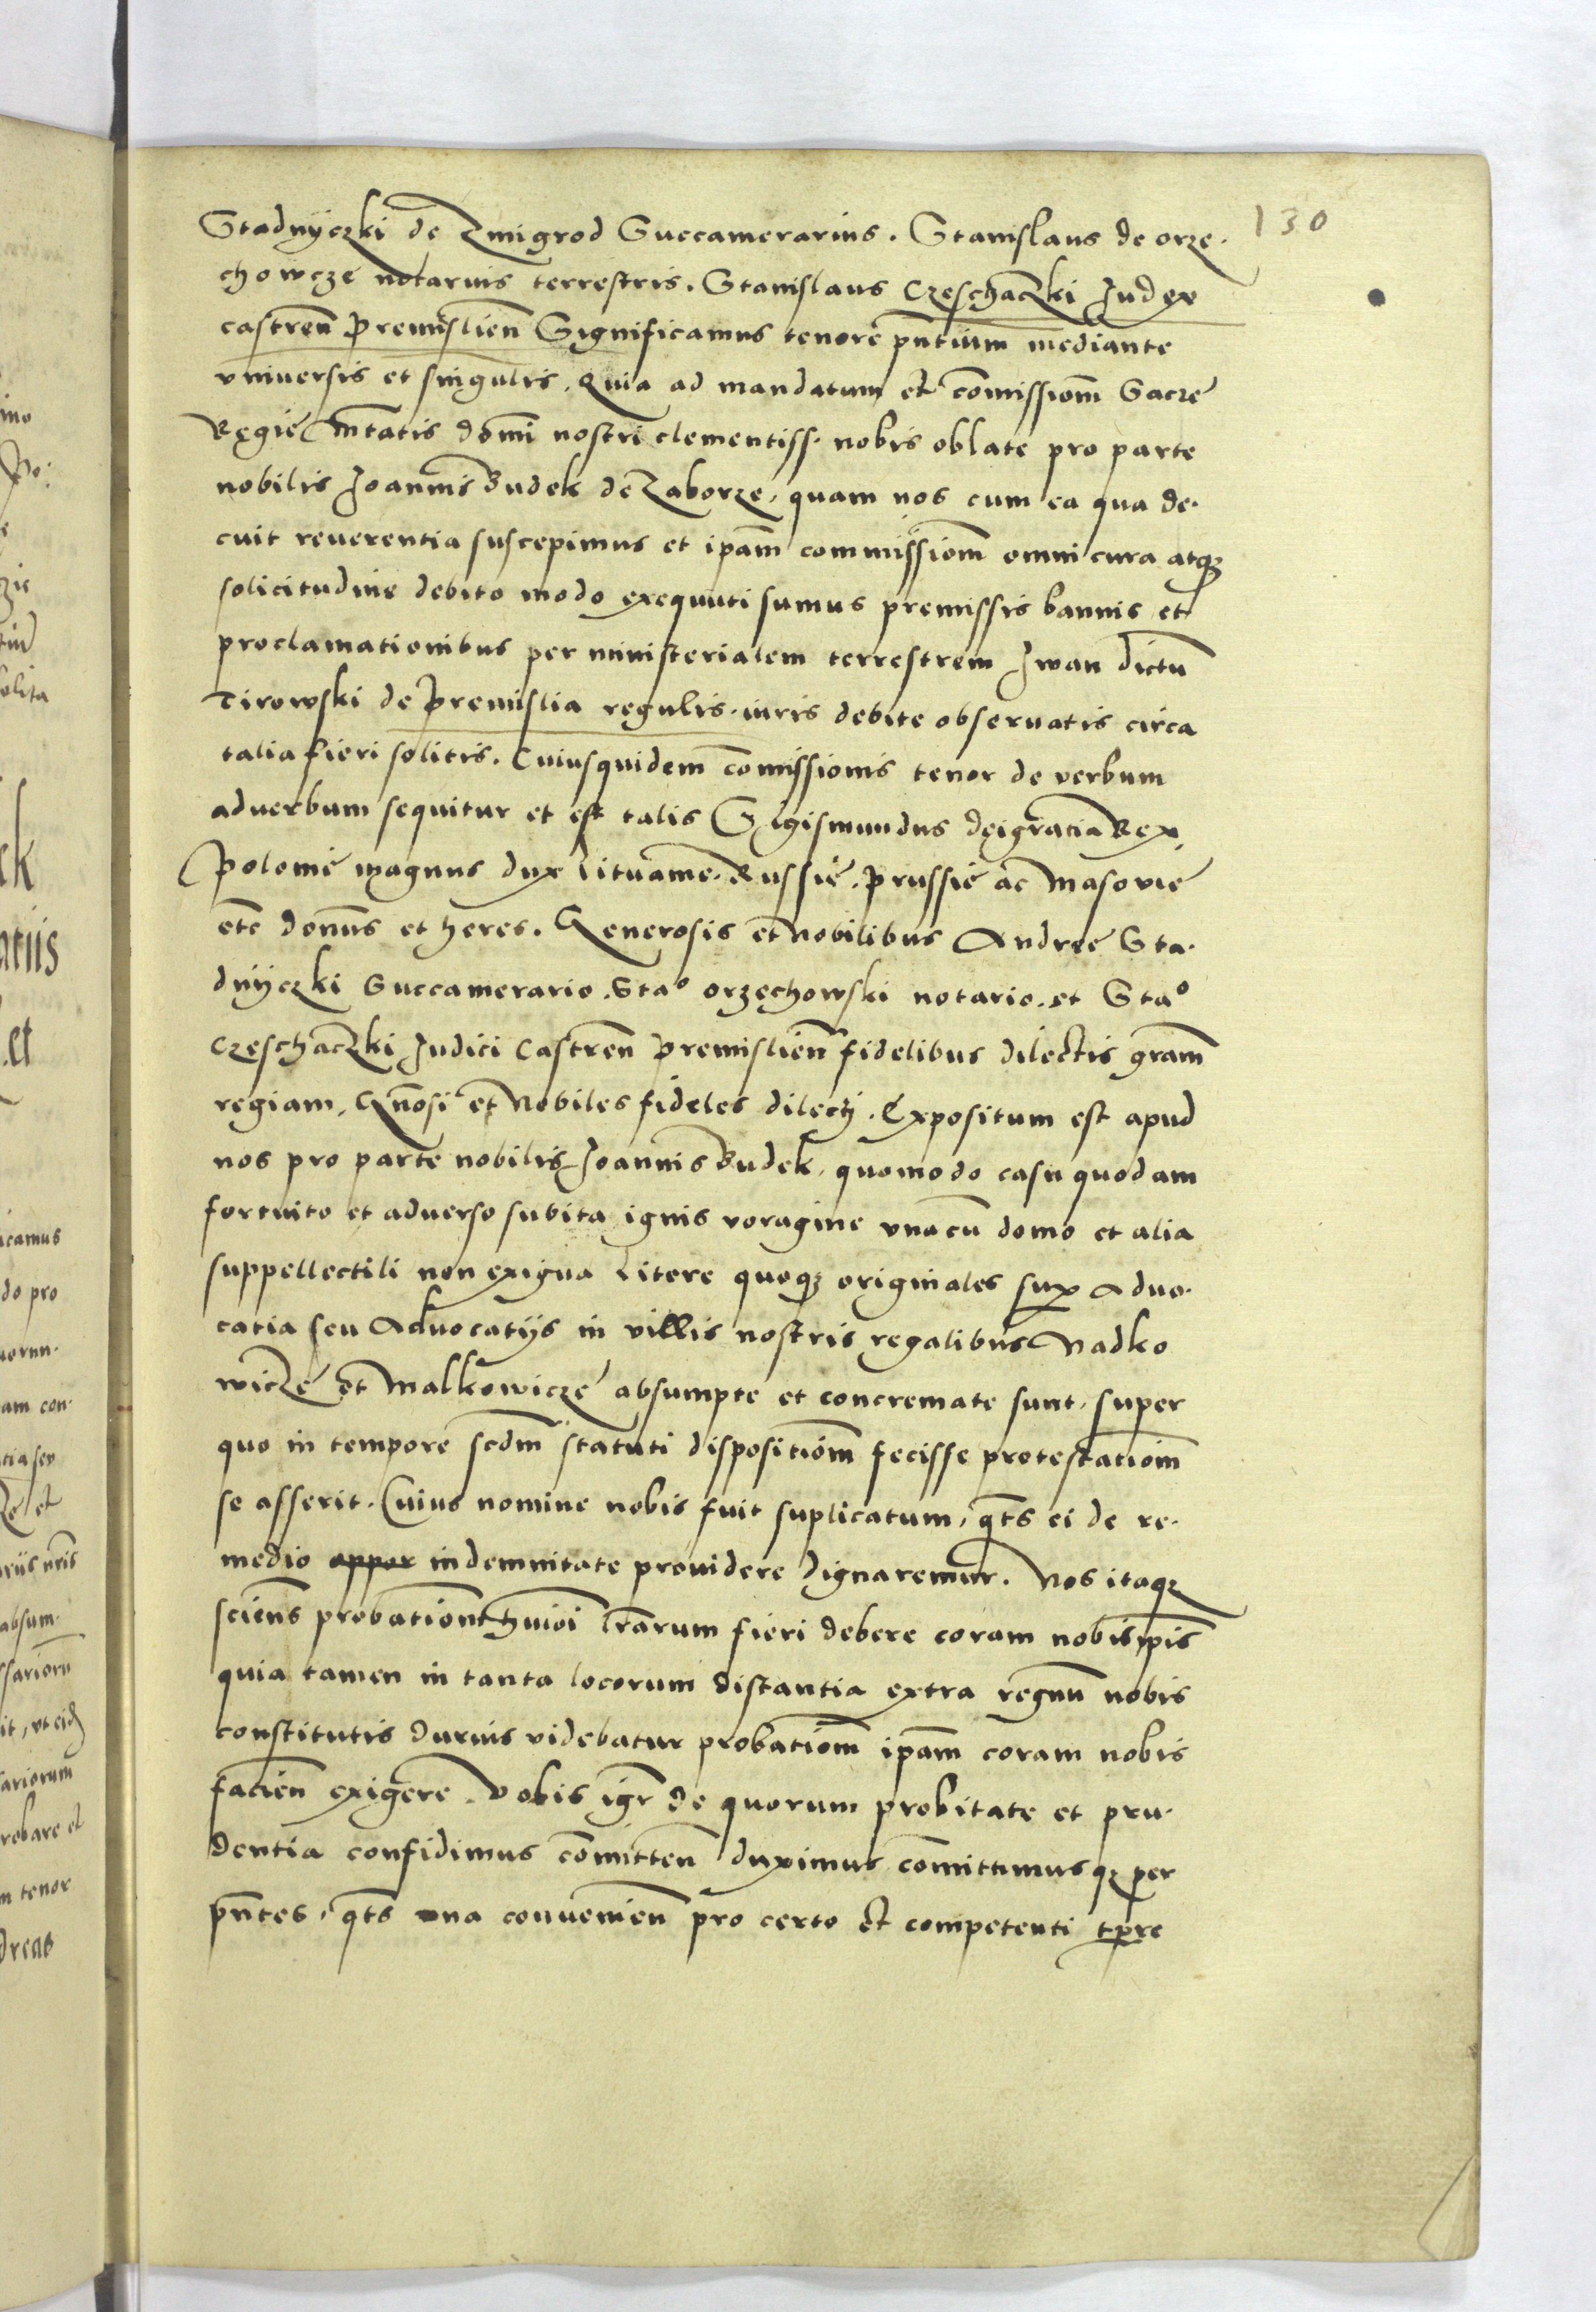 130
Stadnyczki de Zmigrod Succamerarius. Stanislaus de orze.
chowcze notarius terrestris. Stanislaus Czeschaczki Judex
castreñ Premislieñ Significamus tenore pñtium mediante
vniuersis et singulis. Quia ad mandatum et com̃issiom̃ Sacre
Regie Mt̃atis dom̃i nostri clementiss. nobis oblate pro parte
nobilis Joannis Budek de Zaborze, quam nos cum ea qua de.
cuit reuerentia suscepimus et ip̃am commissiom̃ omni cura atqꝫ
solicitudine debito modo exequuti sumus premissis bannis et
proclamationibus per ministerialem terrestrem Jwan dictũ
Tirowski de Premislia regulis iuris debite obseruatis circa
talia fieri solitis. Cuiusquidem com̃issionis tenor de verbum
aduerbum sequitur et est talis Sigismundus deigratia Rex
Polonie magnus dux Lituanie. Russie. Prussie ac Masovie
etc̃ dom̃us et heres. Generosis et Nobilibus Andree Sta.
dnyczki Succamerario. Staᵒ orzechowski notario. et Staᵒ
Czeschaczki Judici Castreñ Premislieñ fidelibus dilectis gram̃
regiam. Gñosi et Nobiles fideles dilecti. Expositum est apud
nos pro parte nobilis Joannis Budek, quomodo casu quodam
fortuito et aduerso subita ignis voragine vnacũ domo et alia
suppellectili non exigua Litere quoqꝫ originales sup̱ Aduo.
catia seu Aduocatijs in villis nostris regalibus Nadko
wicze et Malkowicze absumpte et concremate sunt, super
quo in tempore scdm̃ statuti dispositiom̃ fecisse protestatiom̃
se asserit. Cuius nomine nobis fuit suplicatum, qt̃s ei de re.
medio appor indemnitate prouidere dignaremur. Nos itaqꝫ
scieñs probatiom̃ hmõi Lr̃arum fieri debere coram nobis ip̃is
quia tamen in tanta locorum distantia extra regnũ nobis
constitutis durius videbatur probatiom̃ ip̃am coram nobis
facieñ exigere. Vobis igr̃ de quorum probitate et pru.
dentia confidimus com̃itteñ duximus com̃ittimusqꝫ per
pñtes, qt̃s vna conuenieñ pro certo et competenti tp̱re